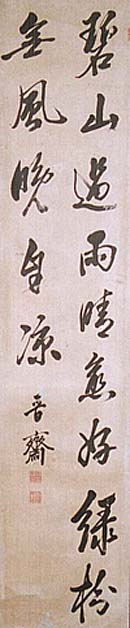 碧山過雨晴逾好綠樹
無風晚自涼
晉齋